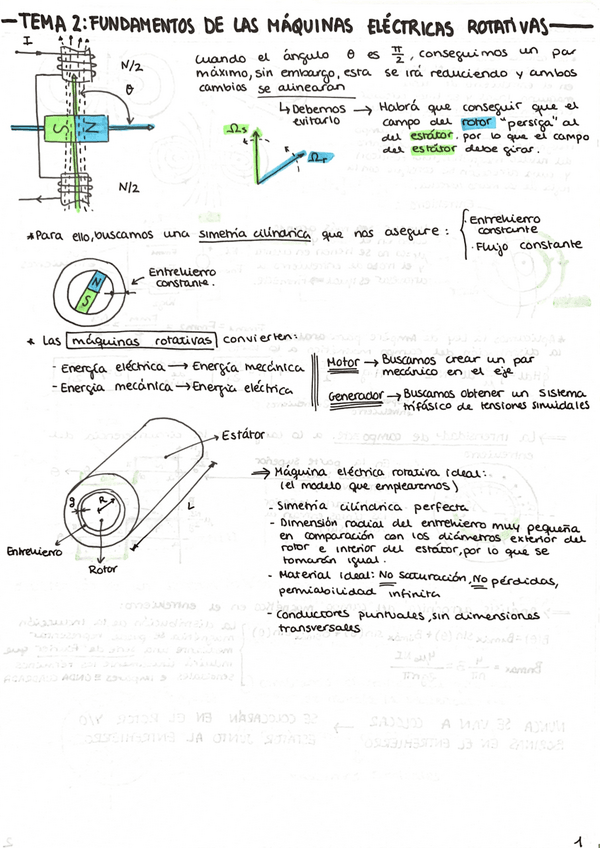 TEMA 2: FUNDAMENTOS DE LAS MÁQUINAS ELÉCTRICAS ROTATIVAS
I
N/2
θ
S N
N/2
Cuando el ángulo θ es π/2, conseguimos un par
máximo, sin embargo, esta se irá reduciendo y ambos
cambios se alinearán
↳ Debemos evitarlo → Habrá que conseguir que el
campo del rotor "persiga" al
del estátor. por lo que el campo
del estátor debe girar.
Ωs
Ωr
*Para ello, buscamos una simetría cilíndrica que nos asegure:
· Entrehierro
constante
· Flujo constante
N
S
Entrehierro
constante.
* Las máquinas rotativas convierten:
- Energía eléctrica → Energía mecánica
- Energía mecánica → Energía eléctrica
Motor → Buscamos crear un par
mecánico en el eje
Generador → Buscamos obtener un sistema
trifásico de tensiones sinuidales
Estátor
g
R
L
Entrehierro
Rotor
⇒ Máquina eléctrica rotativa ideal:
(el modelo que emplearemos)
- Simetría cilíndrica perfecta
- Dimensión radial del entrehierro muy pequeña
en comparación con los diámetros exterior del
rotor e interior del estátor, por lo que se
tomarán igual.
- Material ideal: No saturación, No pérdidas,
permiabilidad infinita
- Conductores puntuales, sin dimensiones
transversales
1